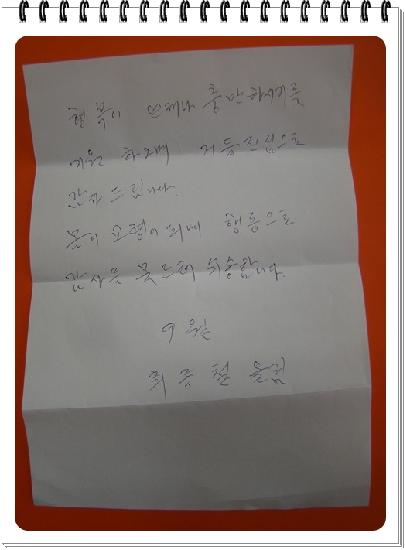 행복이 언제나 충만하시기를
기원 하오며 거듭 진심으로
감사 드립니다.
몸이 으로
감사를 못드려 죄송합니다.
9월
최종철 올림